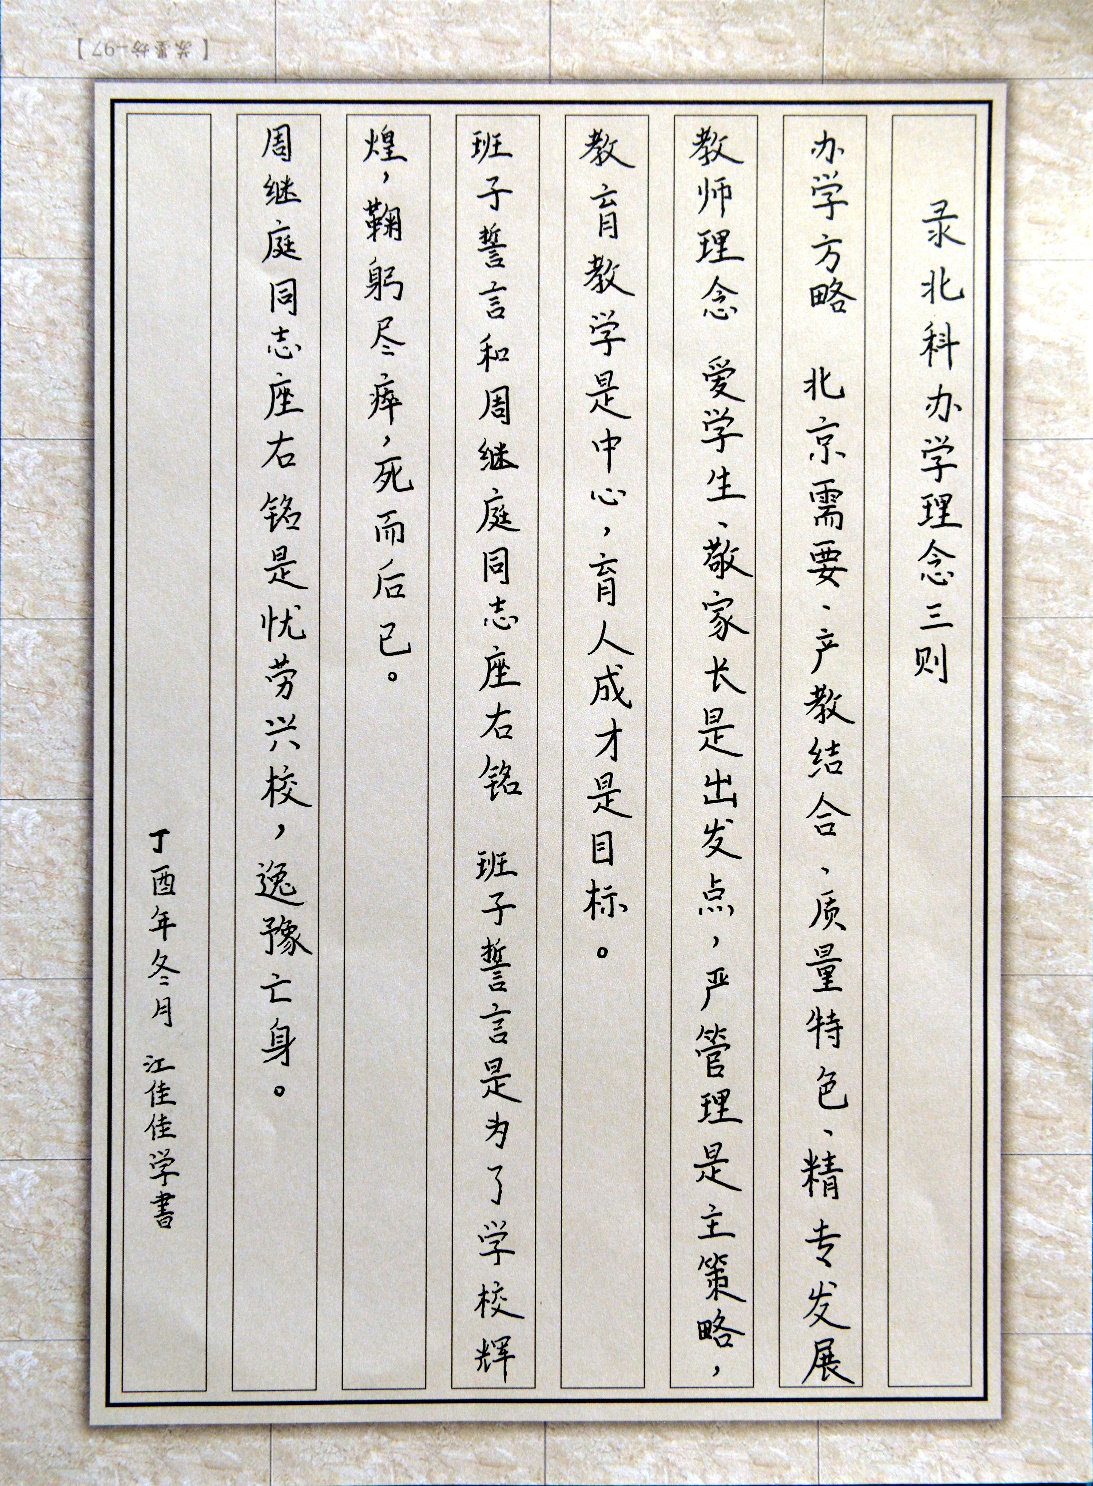 录北科办学理念三则
办学方略 北京需要、产教结合、质量特色、精专发展
教师理念 爱学生、敬家长是出发点，严管理是主策略，
教育教学是中心，育人成才是目标。
班子誓言和周继庭同志座右铭 班子誓言是为了学校辉
煌，鞠躬尽瘁，死而后已。
周继庭同志座右铭是忧劳兴校，逸豫亡身。
丁酉年冬月 江佳佳学書